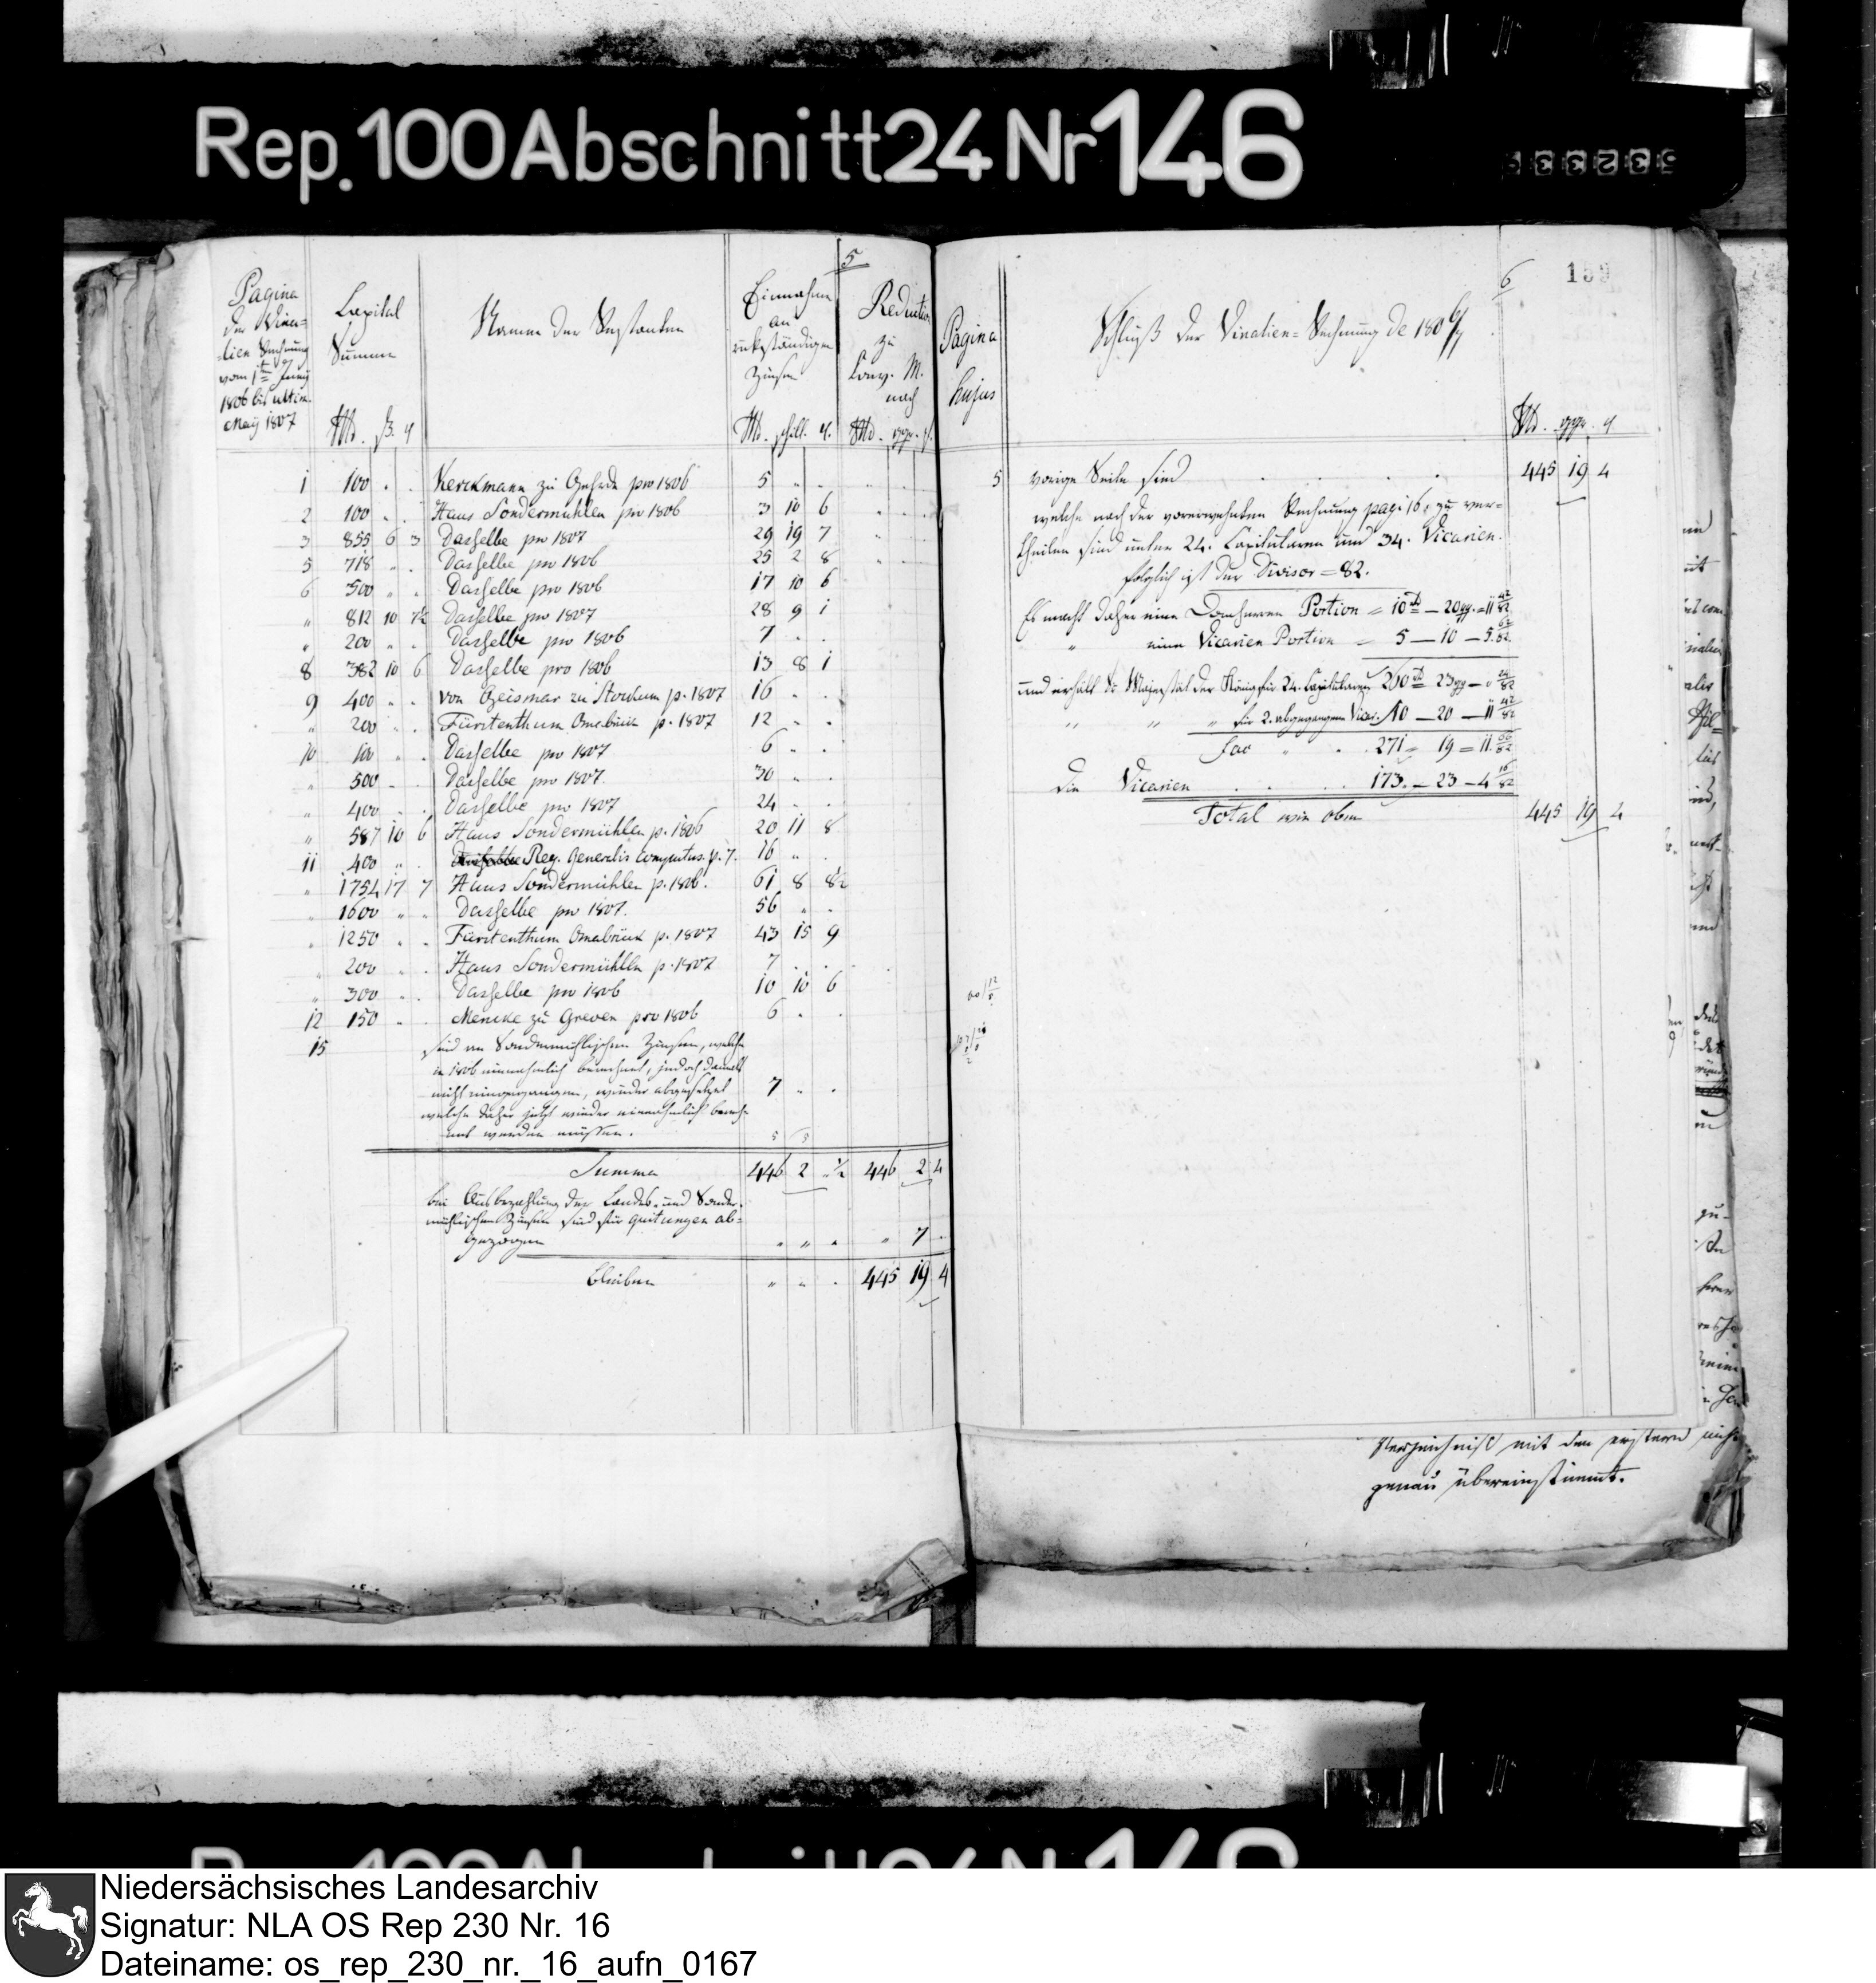 Rep. 100 Abschnitt 24 Nr 146
5
Pagina
der Vina=
lien Rechnung
vom 1ten Juny
1806 bis ultim.
May 1807
Capital
Summe
Rthl. ß. ₰
Namen der Restanten
Einnahme
an
rückständigen
Zinsen
Rthl. schill. ₰.
Reduction
zu
Conv. M.
nach
Rthl. ggr. ₰.
1 100 . . Kerckmann zu Gehrde pro 1806 5 " .
2 100 " . Haus Sondermühlen pro 1806 3 10 6
3 855 6 3 Dasselbe pro 1807 29 19 7
5 718 " . Dasselbe pro 1806 25 2 8
6 500 " " Dasselbe pro 1806 17 10 6
" 812 10 7½ Dasselbe pro 1807 28 9 1
" 200 " . Dasselbe pro 1806 7 . .
8 382 10 6 Dasselbe pro 1806 13 8 1
9 400 . . von Geismar zu Stockum p. 1807 16 . .
" 200 " . Fürstenthum Osnabrück p. 1807 12 " .
10 100 . . Dasselbe pro 1807 6 " .
" 500 " . Dasselbe pro 1807. 30 " .
" 400 . . Dasselbe pro 1807 24 . .
" 587 10 6 Haus Sondermühlen p. 1806 20 11 8
11 400 " . Reg. Generalis computus. p. 7. 16 " .
" 1754 17 7 Haus Sondermühlen p. 1806. 61 8 8½
" 1600 " . Dasselbe pro 1807. 56 " .
" 1250 " . Fürstenthum Osnabrück p. 1807 43 15 9
" 200 " . Haus Sondermühlen p. 1807 7 . .
" 300 . . Dasselbe pro 1806 10 10 6
12 150 " . Mencke zu Greven pro 1806 6 . .
15 sind an Sondermühlischen Zinsen, welche
in 1806 einnahmlich berechnet, jedoch damals
nicht eingegangen, wieder abgesetzet 7 " .
welche daher jetzt wieder einnahmlich berech=
net werden müssen.
Summa 446 2 " ½ 446 2 4
bei Ausbezahlung der Landes- und Sonder=
mühlischen Zinsen sind für Quitungen ab=
gezogen " " " " 7 .
bleiben " " . 445 19 4
6
159
Pagina
hujus
Schluß der Vinalien=Rechnung de 1806/7
Rthl. ggr. ₰
5 vorige Seite sind . . . 445 19 4
welche nach der vorerwehnten Rechnung pag: 16, zu ver=
theilen sind unter 24. Capitularen und 34. Vicarien.
folglich ist der Divisor = 82.
Es macht daher eine Domherren Portion = 10 rt — 20 gg. = 11 42/82
" eine Vicarien Portion = 5 — 10 — 5. 62/82
und erhält Se. Majestät der König für 24. Capitularen 260 rt = 23 gg — " 24/82
" " " für 2. abgegangene Vicar. 10 — 20 — 11 42/82
Fac " . . 271 = 19 = 11. 66/82
die Vicarien . . . 173. — 23 — 4 16/82
Total wie oben 445 19 4
Verzeichniß mit den erstern nicht
genau übereinstimmt.
Niedersächsisches Landesarchiv
Signatur: NLA OS Rep 230 Nr. 16
Dateiname: os_rep_230_nr._16_aufn_0167